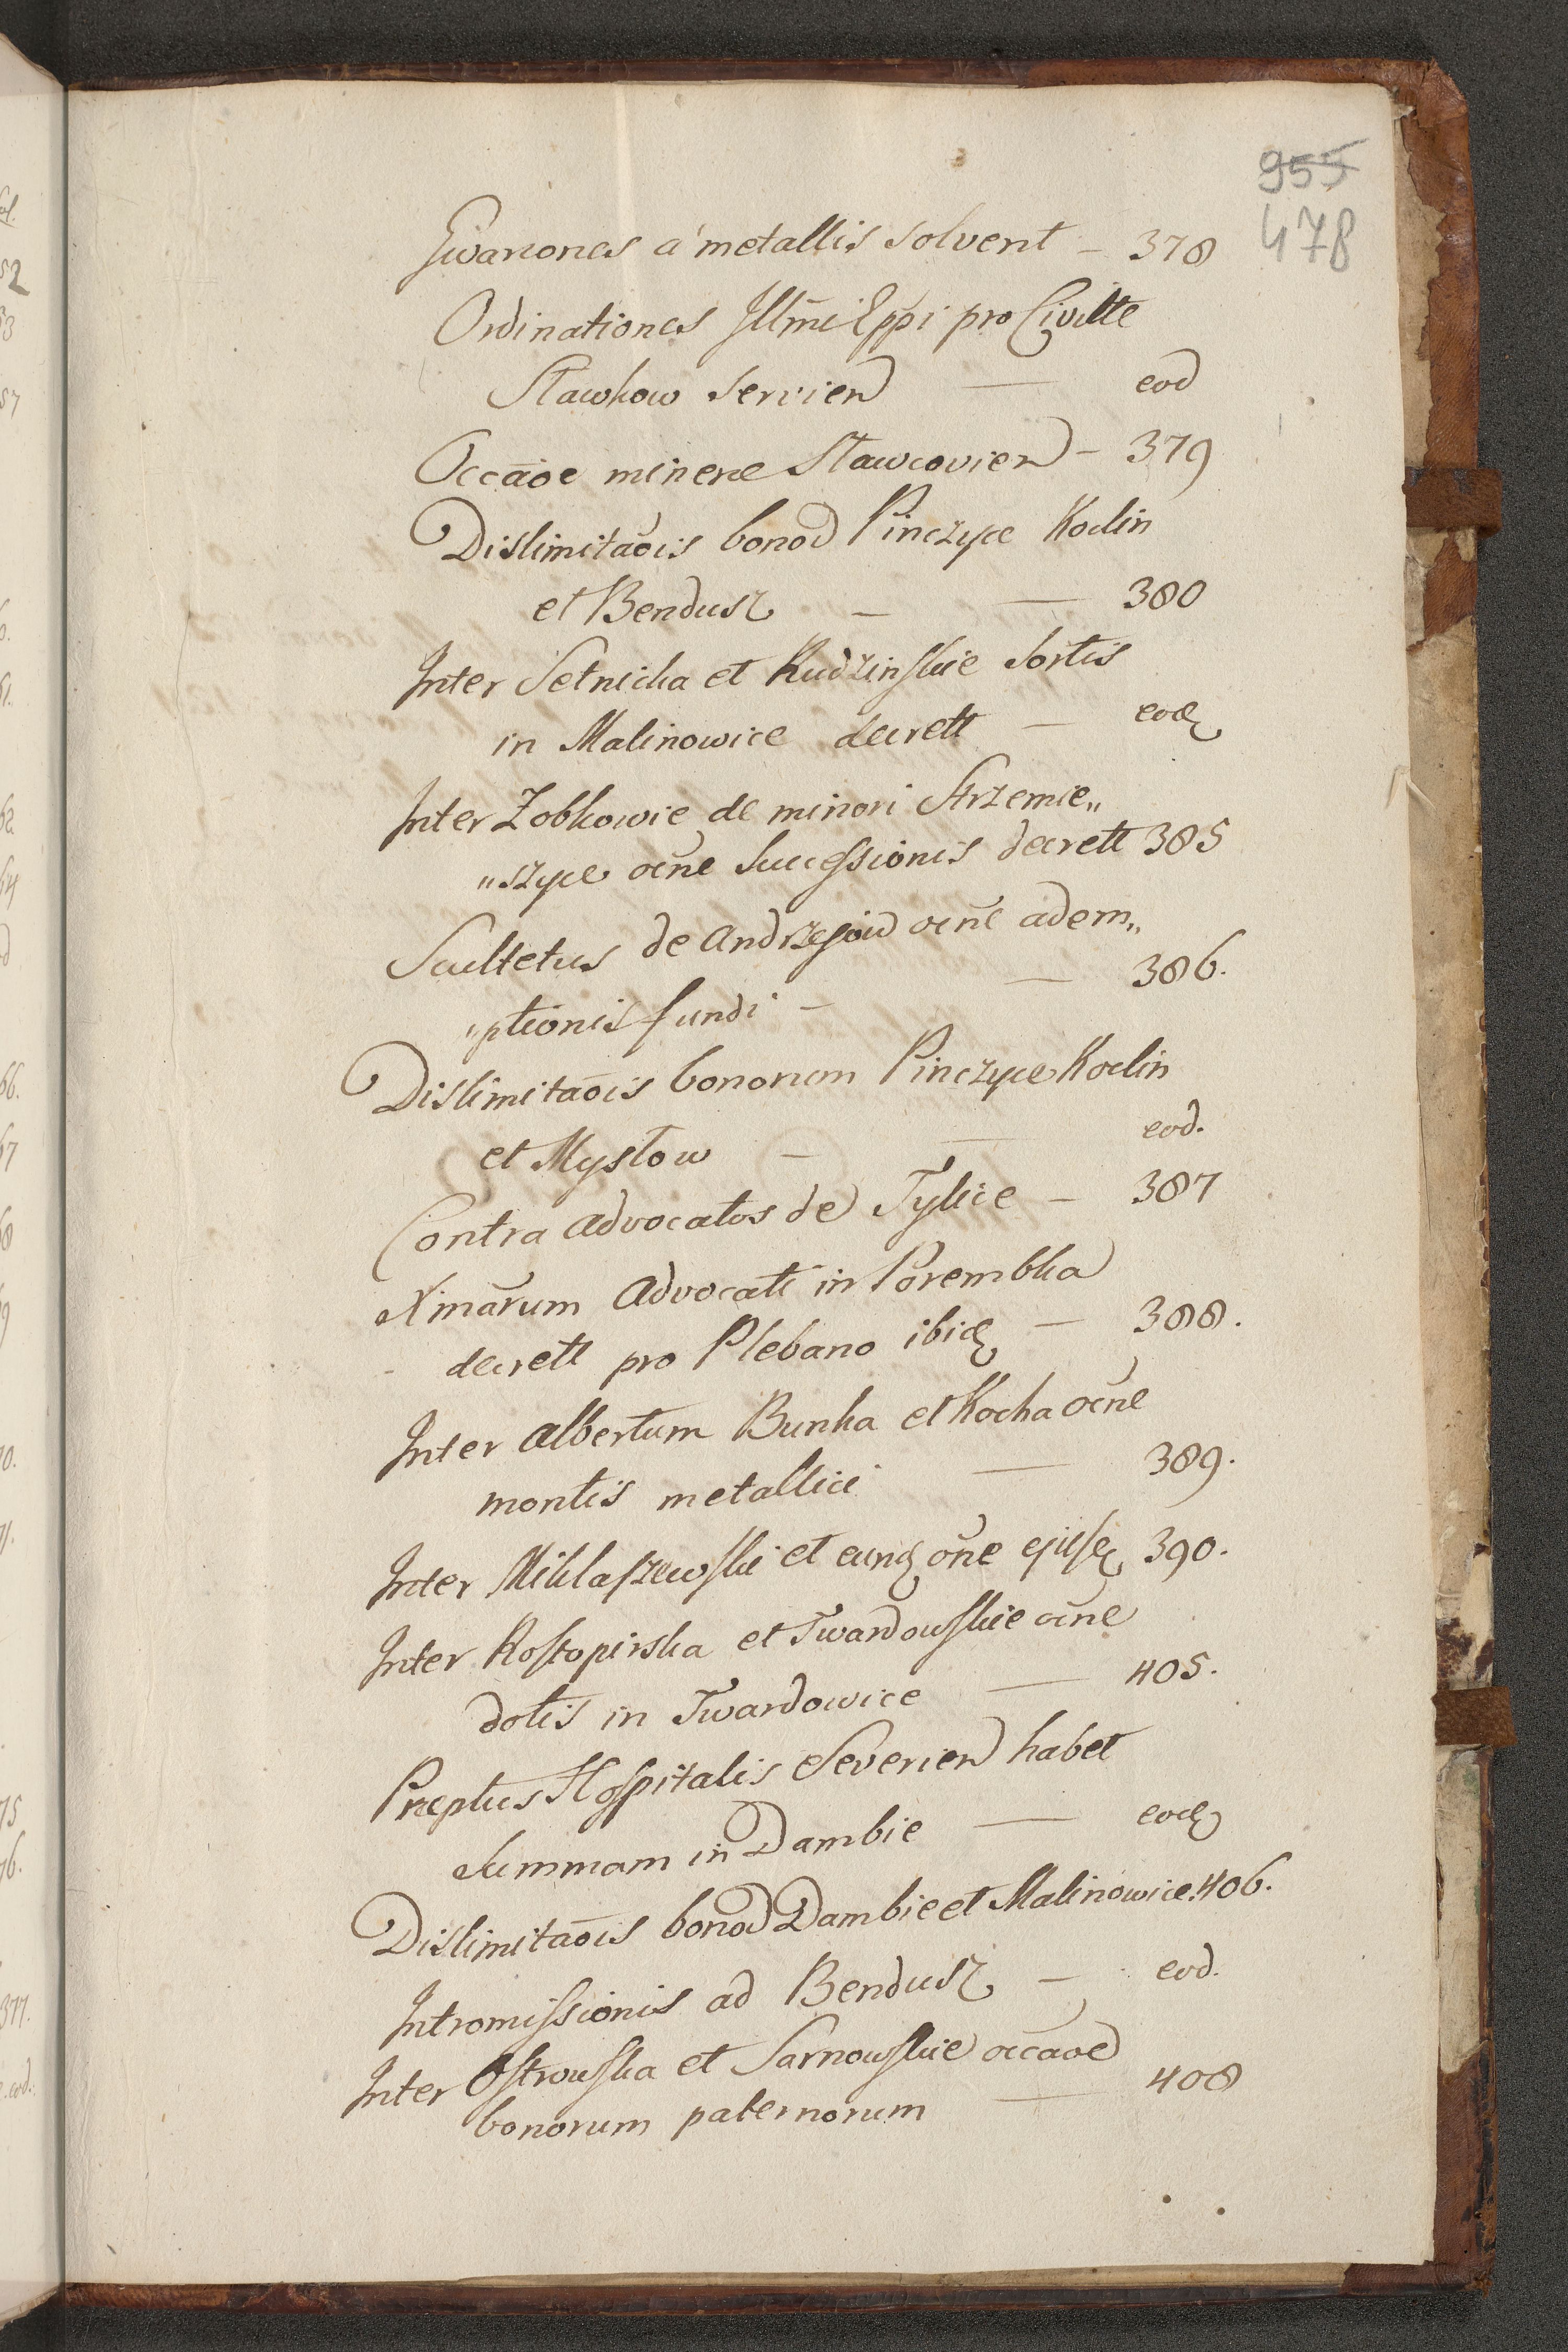 955
478
Gwarones a metallis solvent – 378
Ordinationes Jllm̄i Epp̄i pro Civitte
Stawkow servien — eod
Occāoe minerae Stawcovien – 379
Dislimitaōis bonod Pinczyce Koclin
et Bendusz – — 380
Inter Setnicka et Rudzinskie sortis
in Malinowice decrett – eodq
Inter Zobkowie de minori Strzemie„
„szyce oc̄ne successionis decrett 385
Scultetus de Andrzejow oc̄ne adem„
„ptionis fundi – — 386.
Dislimitaōis bonorum Pinczyce Koclin
et Mysłow – — eod.
Contra Advocatos de Tylice – 387
Xmārum Advocati in Porembka
decrett pro Plebano ibid – 388.
Inter Albertum Bunka et Kocha oc̄ne
montis metallici — 389.
Inter Miklaszewski et eund ōne ejusd 390.
Inter Rostopirska et Twardowskie oc̄ne
dotis in Twardowice — 405.
Praeptus Hospitalis Severien habet
summam in Dambie — eod
Dislimitaōis bonod Dambie et Malinowice. 406.
Intromissionis ad Bendusz – eod.
Inter Ostrowska et Sarnowskie occāoe
bonorum paternorum — 408